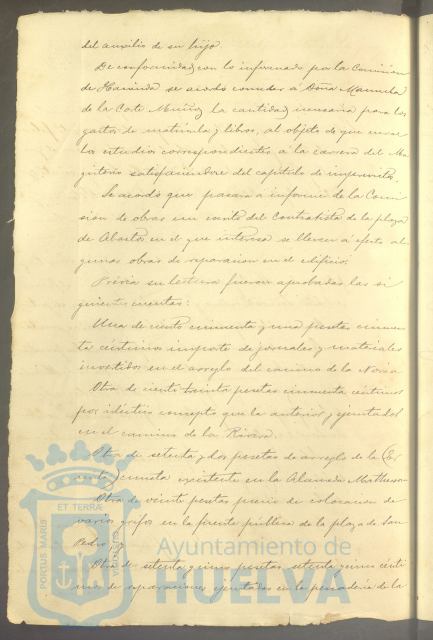 del auxilio de su hijo.
De conformidad con lo informado por la Comision
de Hacienda se acordó conceder á Doña Manuela
de la Corte Muñoz la cantidad necesaria para los
gastos de matrícula y libros, al objeto de que curse
los estudios correspondientes á la carrera del Ma
gisterio satisfaciendose del capítulo de imprevistos.
Se acordó que pasara á informe de la Comi
sion de obras un escrito del Contratista de la plaza
de Abastos en el que interesa se lleven á efecto al
gunas obras de reparacion en el edificio.
Prévia su lectura fueron aprobadas las si
guientes cuentas:
Una de ciento cincuenta y una pesetas cincuen
ta céntimos importe de jornales y materiales
invertidos en el arreglo del camino de la Noria
Otra de ciento treinta pesetas cincuenta céntimos
por idéntico concepto que la anterior y ejecutado
en el camino de la Rivera.
Otra de setenta y dos pesetas de arreglo de la
existente en la Alameda Matheson
Otra de veinte pesetas precio de colocacion de
varios grifos en la fuente pública de la plaza de San
Pedro, y
Otra de setenta y cinco pesetas setenta y cinco cénti
mos de reparaciones ejecutadas en la pescadería de la
ET TERRÆ
PORTUS MARIS
CUSTODIA
Ayuntamiento de
HUELVA